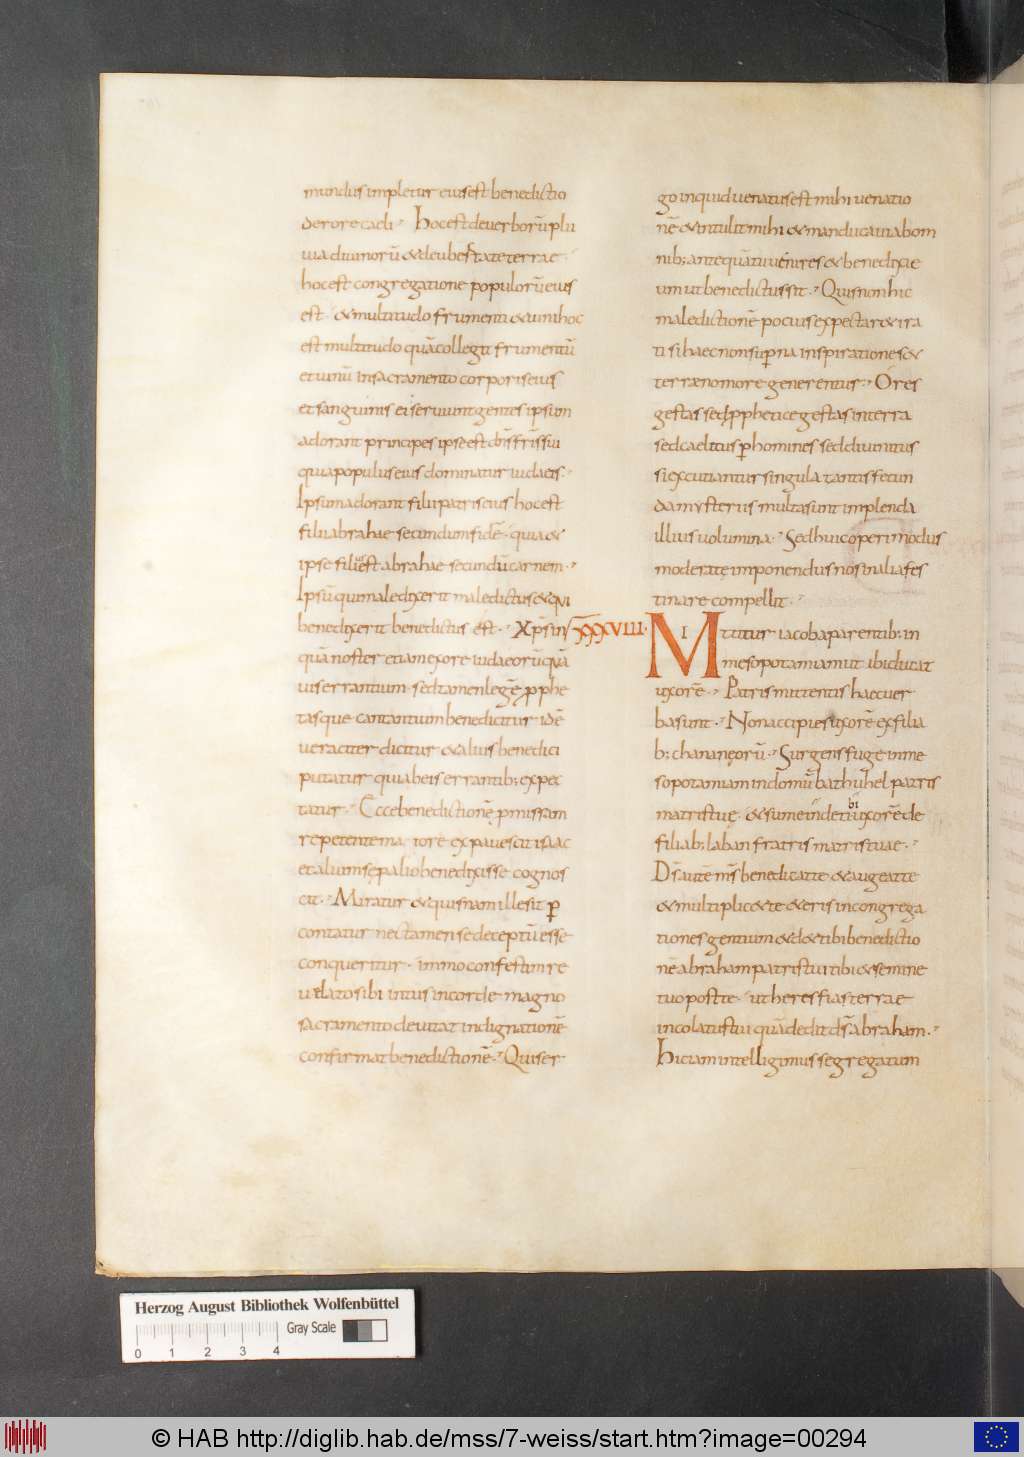 mundus impletur eius est benedictio
derore caeli · hoc est deverborū plu
via divinorū & deubestate terrae ·
hoc est congregatione populorū eius
est · & multitudo frumenti & vini hoc
est multitudo quā collegit frumentū
et vinū in sacramento corporis eius
et sanguinis ei serviunt gentes ipsum
adorant principes ipse est dn̄s fr̄is sui
quia populus eius dominatur iudaeis ·
Ipsum adorant filii patris eius hoc est
filii abrahae secundum fidē · quia &
ipse filius est abrahae secundū carnem ·
Ipsū qui maledixerit maledictus & qui
benedixerit benedictus est · Xp̄s in
quā noster etiam ex ore iudaeorū quā
vis errantium sed tamen legē prophe
tasque cantantium benedicitur idē
veraciter dicitur & alius benedici
putatur qui ab eis errantib; expec
tatur · Ecce benedictionē p̄missam
repetente maiore expavescit isaac
et alium se p alio benedixisse cognos
cit · Miratur & quisnam ille sit per
contatur nec tamen se deceptū esse
conqueritur · immo confestim re
velato sibi intus in corde magno
sacramento devitat indignationē
confirmat benedictionē · Quis er
go inquid venatus est mihi venatio
nē & intulit mihi & manducavi ab om
nib; antequā tu venires & benedixi e
um ut benedictus sit · Quis non hic
maledictionē pocius expectar& ira
ti si haec non sup̄na inspiratione s&
terraeno more generentur · O res
gestas sed prophetice gestas in terra
sed caelitus p̄ homines sed divinitus
si excutiantur singula tantis fecun
da mysteriis multa sunt implenda
illius volumina · Sed huic operi modus
moderate imponendus nos in alia fes
tinare compellit ·
XXXXVIII · Mittitur iacob a parentib; in
mesopotamiam ut ibi ducat
uxorē · Patris mittentis haec ver
ba sunt · Non accipies uxorē ex filia
b; chananęorū · Surgens fuge in me
sopotamiam in domū bathuhel patris
matris tuę · & sume inde tibi uxorē de
filiab; laban fratris matris tuae ·
Ds̄ autē ms̄ benedicat te & augeat te
& multiplic& te & eris in congrega
tiones gentium & d& tibi benedictio
nē abraham patris tui tibi & semine
tuo post te · ut heres fias terrae
incolatus tui quā dedit ds̄ abraham ·
Hic iam intelligimus segregatum
Herzog August Bibliothek Wolfenbüttel
Gray Scale
0 1 2 3 4
© HAB http://diglib.hab.de/mss/7-weiss/start.htm?image=00294